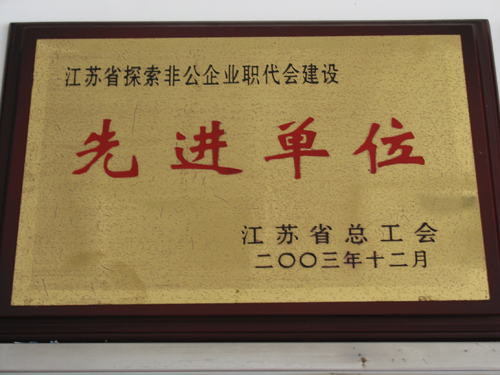 江苏省探索非公企业职代会建设
先进单位
江苏省总工会
二〇〇三年十二月